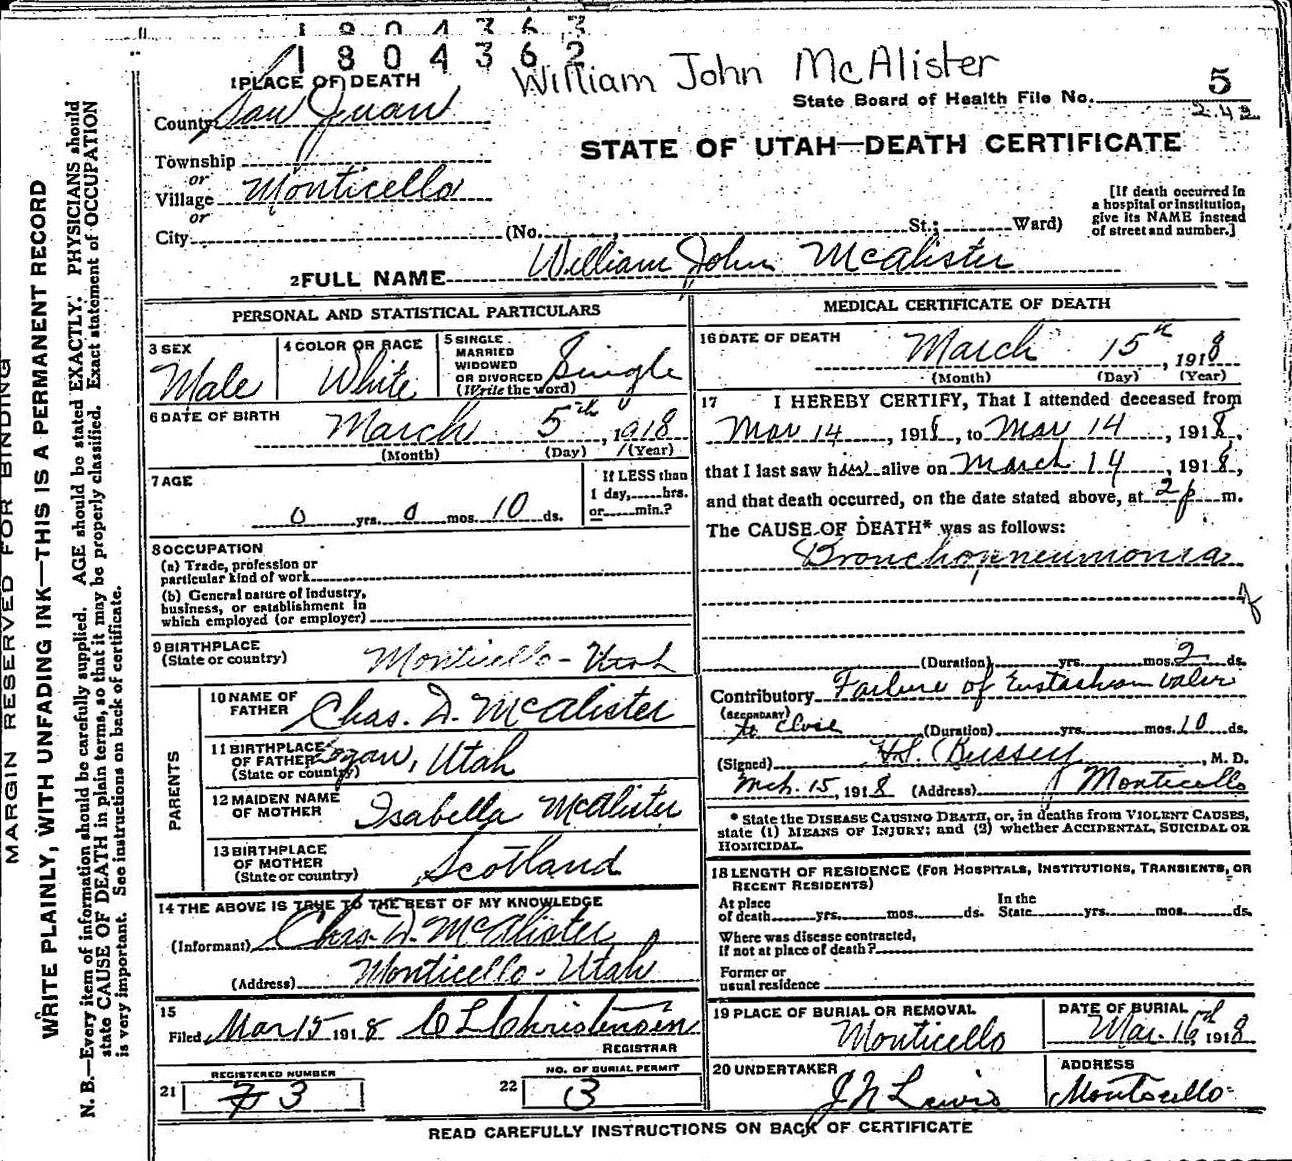 1804363
1804362
William John McAlister
5
State Board of Health File No.
242
1 PLACE OF DEATH
County San Juan
STATE OF UTAH—DEATH CERTIFICATE
Township
or
Village Monticello
or
City (No. , St.; Ward)
[If death occurred in
a hospital or institution,
give its NAME instead
of street and number.]
2 FULL NAME William John McAlister
PERSONAL AND STATISTICAL PARTICULARS
3 SEX
Male
4 COLOR OR RACE
White
5 SINGLE
MARRIED
WIDOWED
OR DIVORCED
(Write the word)
Single
6 DATE OF BIRTH
March 5th, 1918
(Month) (Day) (Year)
7 AGE
0 yrs. 0 mos. 10 ds.
If LESS than
1 day, hrs.
or min.?
8 OCCUPATION
(a) Trade, profession or
particular kind of work
(b) General nature of industry,
business, or establishment in
which employed (or employer)
9 BIRTHPLACE
(State or country)
Monticello - Utah
PARENTS
10 NAME OF
FATHER
Chas. D. McAlister
11 BIRTHPLACE
OF FATHER
(State or country)
Logan, Utah
12 MAIDEN NAME
OF MOTHER
Isabella McAlister
13 BIRTHPLACE
OF MOTHER
(State or country)
Scotland
14 THE ABOVE IS TRUE TO THE BEST OF MY KNOWLEDGE
(Informant) Chas. D. McAlister
(Address) Monticello - Utah
15
Filed Mar 15 1918 C L Christensen
REGISTRAR
REGISTERED NUMBER
21 3
NO. OF BURIAL PERMIT
22 3
MEDICAL CERTIFICATE OF DEATH
16 DATE OF DEATH
March 15th, 1918
(Month) (Day) (Year)
17 I HEREBY CERTIFY, That I attended deceased from
Mar 14, 1918, to Mar 14, 1918,
that I last saw him alive on March 14, 1918,
and that death occurred, on the date stated above, at 2 p m.
The CAUSE OF DEATH* was as follows:
Bronchopneumonia
(Duration) yrs. mos. 2 ds.
Contributory Failure of Eustachian valve
(SECONDARY)
to close (Duration) yrs. mos. 10 ds.
(Signed) Bussey, M. D.
Mch. 15, 1918 (Address) Monticello
* State the DISEASE CAUSING DEATH, or, in deaths from VIOLENT CAUSES,
state (1) MEANS OF INJURY; and (2) whether ACCIDENTAL, SUICIDAL OR
HOMICIDAL.
18 LENGTH OF RESIDENCE (FOR HOSPITALS, INSTITUTIONS, TRANSIENTS, OR
RECENT RESIDENTS)
At place
of death yrs. mos. ds.
In the
State yrs. mos. ds.
Where was disease contracted,
if not at place of death?
Former or
usual residence
19 PLACE OF BURIAL OR REMOVAL
Monticello
DATE OF BURIAL
Mar. 16th, 1918
20 UNDERTAKER
J N Lewis
ADDRESS
Monticello
READ CAREFULLY INSTRUCTIONS ON BACK OF CERTIFICATE
MARGIN RESERVED FOR BINDING
WRITE PLAINLY, WITH UNFADING INK—THIS IS A PERMANENT RECORD
N. B.—Every item of information should be carefully supplied. AGE should be stated EXACTLY. PHYSICIANS should
state CAUSE OF DEATH in plain terms, so that it may be properly classified. Exact statement of OCCUPATION
is very important. See instructions on back of certificate.